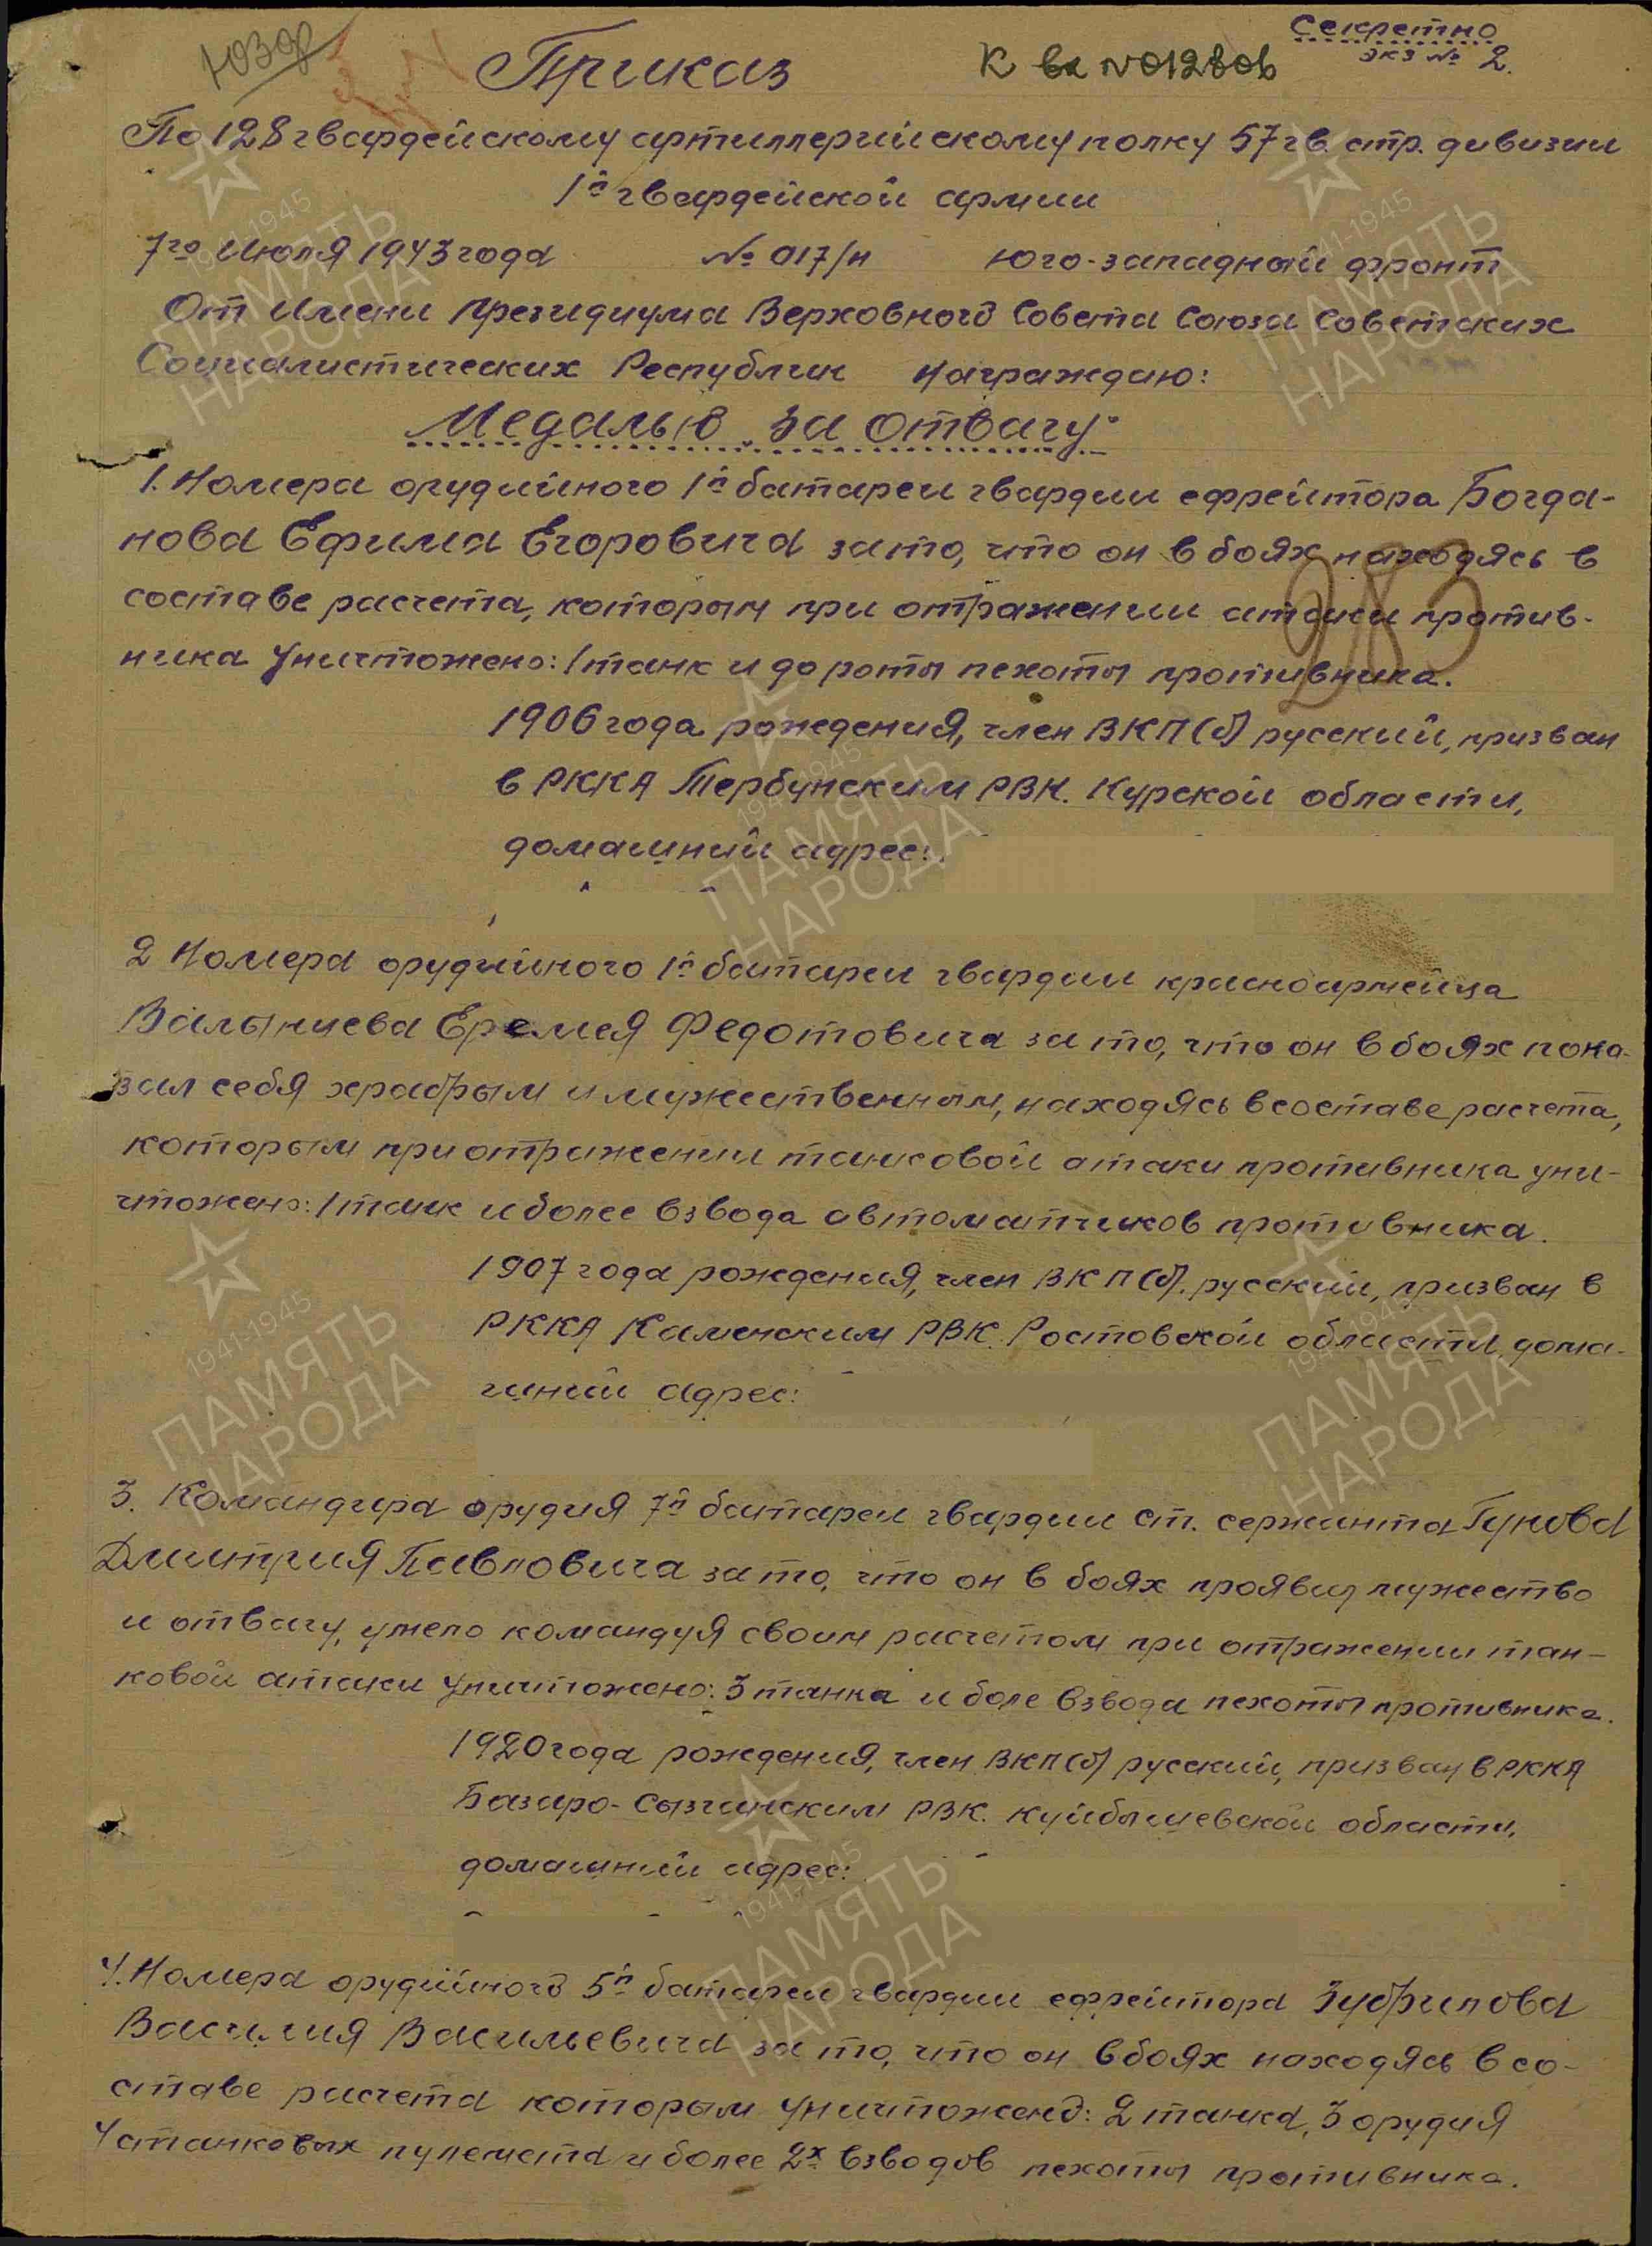 Юзф
Секретно
экз № 2.
Приказ
К вх №01280в
По 128 гвардейскому артиллерийскому полку 57 гв. стр. дивизии
1й гвардейской армии
7го Июля 1943 года № 017/н Юго-западный фронт
От имени Президиума Верховного Совета Союза Советских
Социалистических Республик награждаю:
Медалью "За отвагу"
1. Номера орудийного 1й батареи гвардии ефрейтора Богда-
нова Ефима Егоровича за то, что он в боях находясь в
составе расчета, которым при отражении атаки против-
ника уничтожено: 1 танк и до роты пехоты противника.
283
1906 года рождения, член ВКП(б) русский, призван
в РККА Тербунским РВК. Курской области,
домашний адрес:
2 Номера орудийного 1й батареи гвардии красноармейца
Валынцева Еремея Федотовича за то, что он в боях пока-
зал себя храбрым и мужественным, находясь в составе расчета,
которым при отражении танковой атаки противника уни-
чтожено: 1 танк и более взвода автоматчиков противника.
1907 года рождения, член ВКП(б). русский, призван в
РККА Каменским РВК. Ростовской области, дома-
шний адрес:
3. Командира орудия 7й батареи гвардии ст. сержанта Гунова
Дмитрия Павловича за то, что он в боях проявил мужество
и отвагу, умело командуя своим расчетом при отражении тан-
ковой атаки уничтожено: 3 танка и боле взвода пехоты противника.
1920 года рождения, член ВКП(б) русский, призван в РККА
Базаро-Сызганским РВК. Куйбышевской области,
домашний адрес:
4. Номера орудийного 5й батареи гвардии ефрейтора Зубрилова
Василия Васильевича за то, что он в боях находясь в со-
ставе расчета которым уничтожено: 2 танка, 3 орудия
4 станковых пулемета и более 2х взводов пехоты противника.
1941-1945
ПАМЯТЬ
НАРОДА
1941-1945
ПАМЯТЬ
НАРОДА
1941-1945
ПАМЯТЬ
НАРОДА
1941-1945
ПАМЯТЬ
НАРОДА
1941-1945
ПАМЯТЬ
НАРОДА
1941-1945
ПАМЯТЬ
НАРОДА